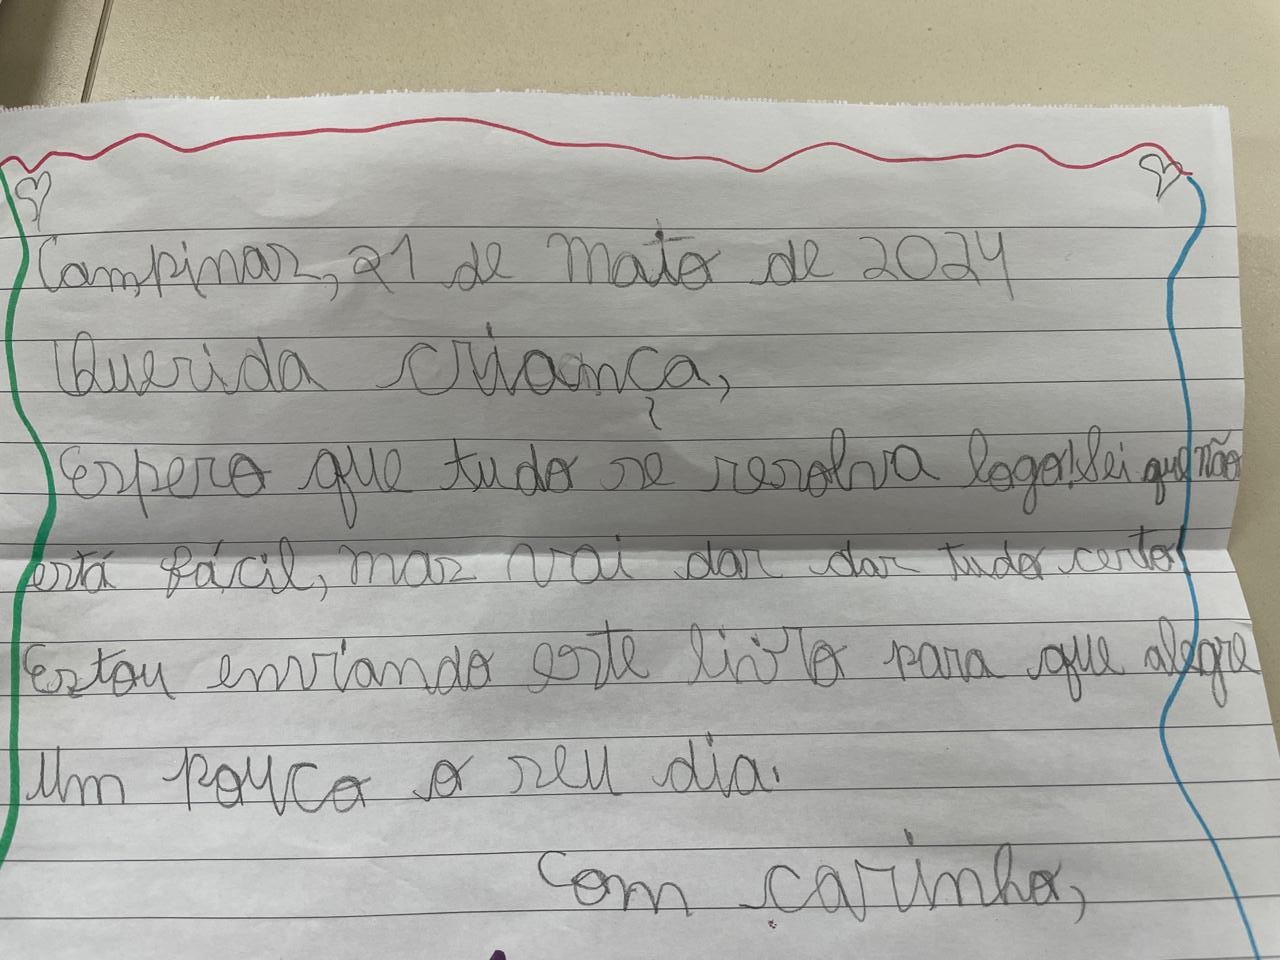 Campinas, 21 de Maio de 2024
Querida criança,
Espero que tudo se resolva logo! Sei que não
está fácil, mas vai dar dar tudo certo!
Estou enviando este livro para que alegre
um pouco o seu dia.
Com carinho,